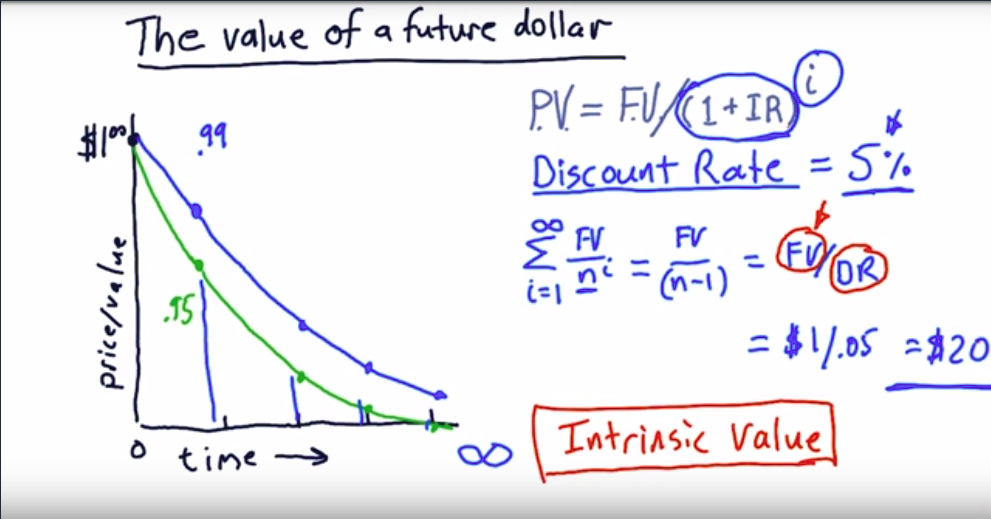 The value of a future dollar
$1⁰⁰
.99
.95
price/value
0 time → ∞
P.V. = F.V./(1+IR)ⁱ
Discount Rate = 5%
∞
∑ FV/nⁱ = FV/(n-1) = FV/DR
i=1
= $1/.05 = $20
Intrinsic Value